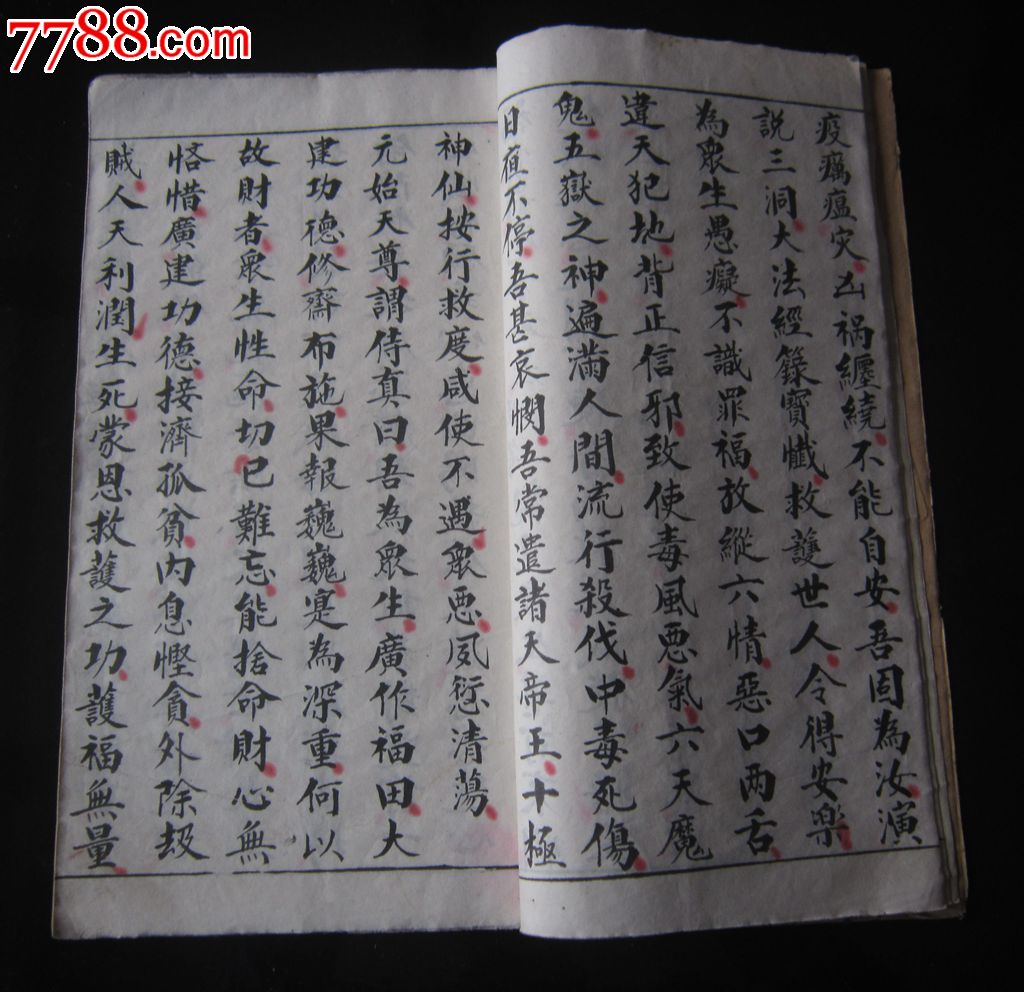 7788.com
疫癘瘟灾凶禍纏繞不能自安吾因為汝演
説三洞大法經籙寶懴救護世人令得安樂
為眾生愚癡不識罪福放縱六情惡口两舌
違天犯地背正信邪致使毒風惡氣六天魔
鬼五嶽之神遍滿人間流行殺伐中毒死傷
日 不停吾甚哀憫吾常遣諸天帝王十極
神仙按行救度咸使不遇眾惡夙愆清蕩
元始天尊謂侍真曰吾為眾生廣作福田大
建功德修齋布施果報巍巍寔為深重何以
故財者眾生性命切己難忘能捨命財心無
悋惜廣建功德接濟孤貧内息慳貪外除劫
賊人天利潤生死蒙恩救護之功護福無量